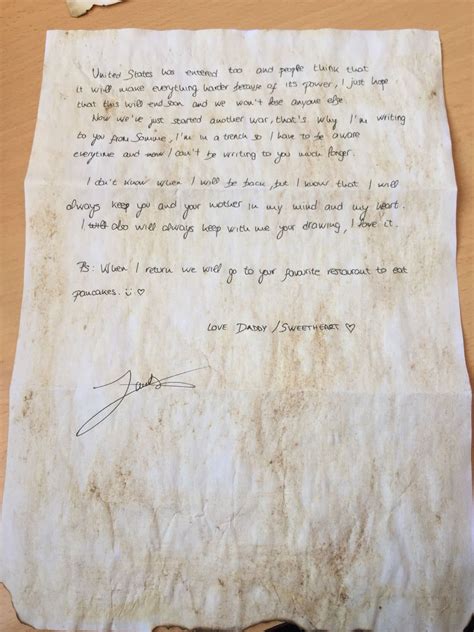 United States has entered too and people think that
it will make everything harder because of its power, I just hope
that this will end soon and we won't lose anyone else.
Now we've just started another war, that's why I'm writing
to you from Somme, I'm in a trench so I have to be aware
everytime and now I can't be writing to you much longer.
I don't know when I will be back, but I know that I will
always keep you and your mother in my mind and my heart.
I will also will always keep with me your drawing, I love it.
Ps: When I return we will go to your favourite restaurant to eat
pancakes. ☺♡
LOVE DADDY / SWEETHEART ♡